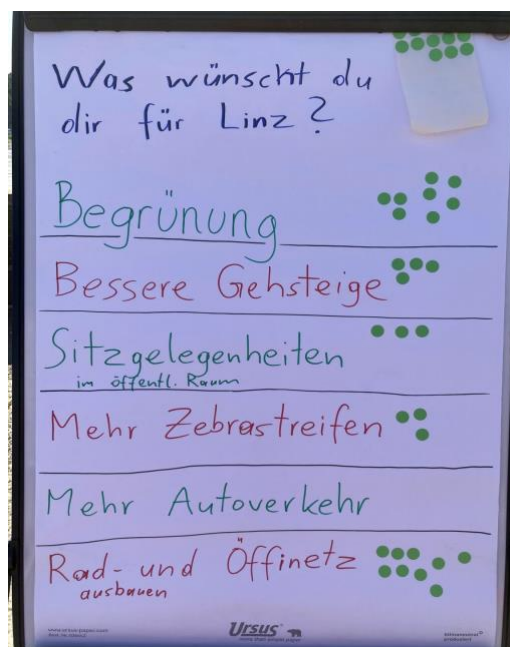 Was wünscht du
dir für Linz?
Begrünung
Bessere Gehsteige
Sitzgelegenheiten
im öffentl. Raum
Mehr Zebrastreifen
Mehr Autoverkehr
Rad- und Öffinetz
ausbauen
Ursus